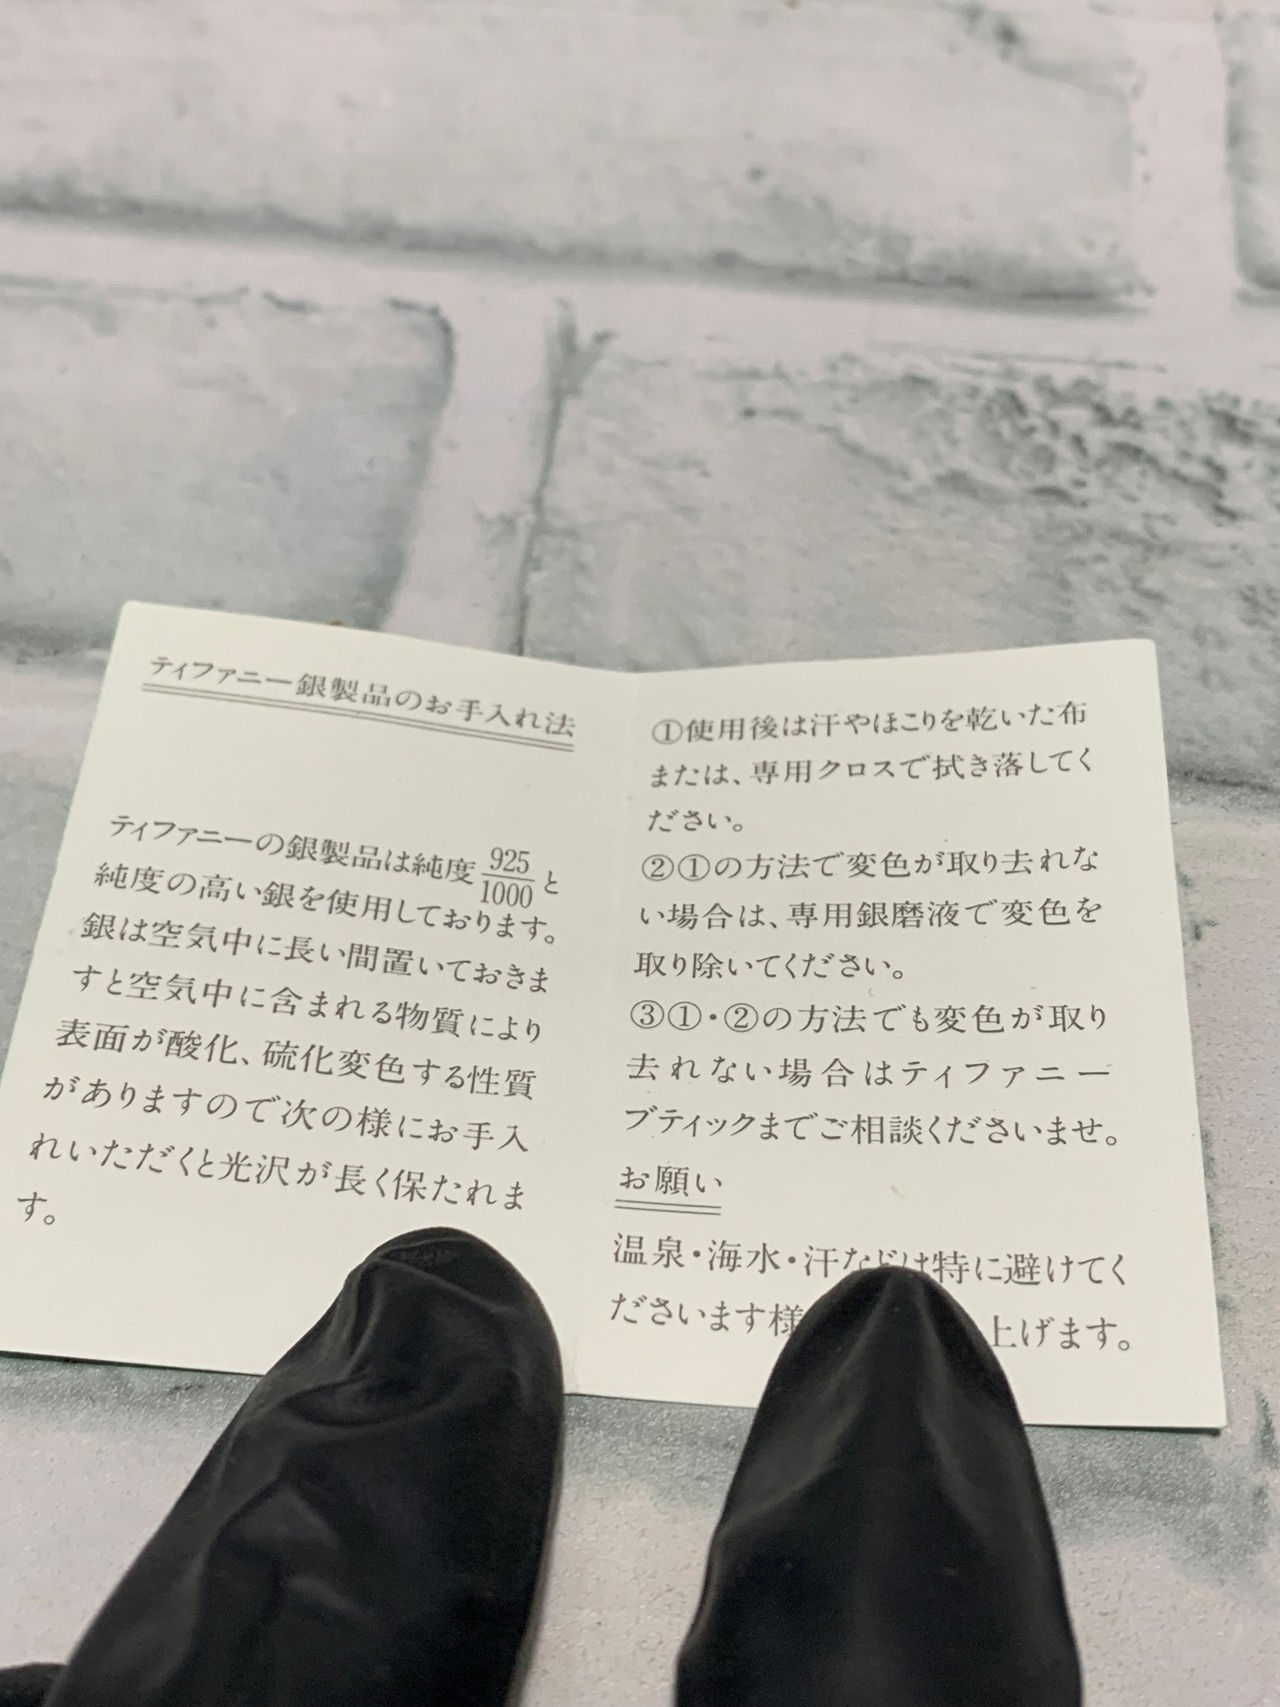 ティファニー銀製品のお手入れ法
ティファニーの銀製品は純度925/1000と
純度の高い銀を使用しております。
銀は空気中に長い間置いておきま
すと空気中に含まれる物質により
表面が酸化、硫化変色する性質
がありますので次の様にお手入
れいただくと光沢が長く保たれま
す。
①使用後は汗やほこりを乾いた布
または、専用クロスで拭き落してく
ださい。
②①の方法で変色が取り去れな
い場合は、専用銀磨液で変色を
取り除いてください。
③①・②の方法でも変色が取り
去れない場合はティファニー
ブティックまでご相談くださいませ。
お願い
温泉・海水・汗などは特に避けてく
ださいます様 上げます。